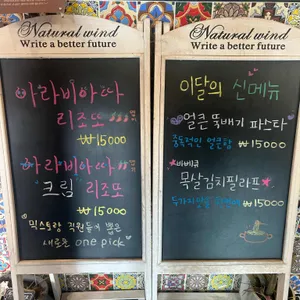 Natural wind
Write a better future
아라비아따
리조또
₩15000
아라비아따
크림 리조또
₩15000
믹스토랑 직원들이 뽑은
새로운 one pick
Natural wind
Write a better future
이달의 신메뉴
얼큰 뚝배기 파스타
중독적인 얼큰함
₩15000
바베큐
목살김치필라프
₩15000